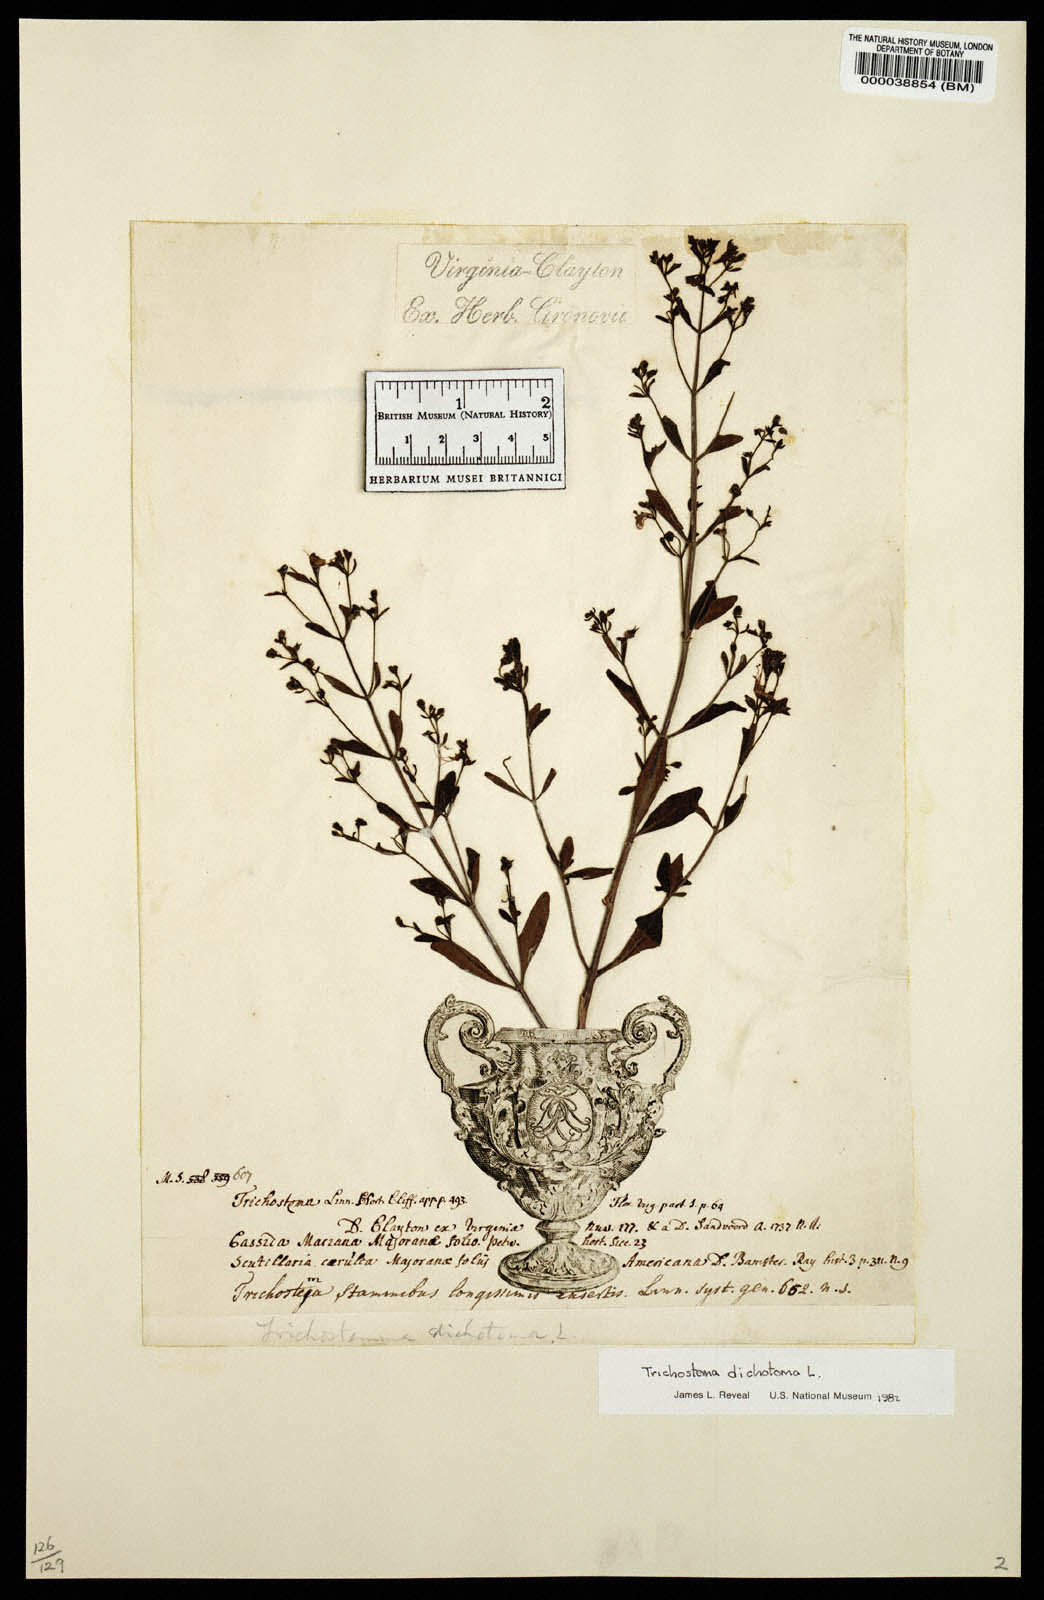 THE NATURAL HISTORY MUSEUM, LONDON
DEPARTMENT OF BOTANY
000038854 (BM)
Virginia-Clayton
Ex. Herb. Gronovii
1 2
BRITISH MUSEUM (NATURAL HISTORY)
1 2 3 4 5
HERBARIUM MUSEI BRITANNICI
M.S. 558 559 607
Trichostema Linn. Hort. Cliff. app p. 493. Flor. Virg. part 1. p. 64
D. Clayton ex Virginia num. 177. & a D. Sandwood A. 1737 N.
Cassida Mariana Majoranæ folio. Petiv. hort. Sicc. 23
Scutellaria cærulea Majoranæ foliis Americana D. Banister. Ray hist. 3 p. 311. N. 9
m
Trichosteja staminibus longissimis exsertis. Linn. syst. gen. 652. n. 1.
Trichostemma dichotoma, L.
Trichostema dichotoma L.
James L. Reveal U.S. National Museum 1982
126/129
2